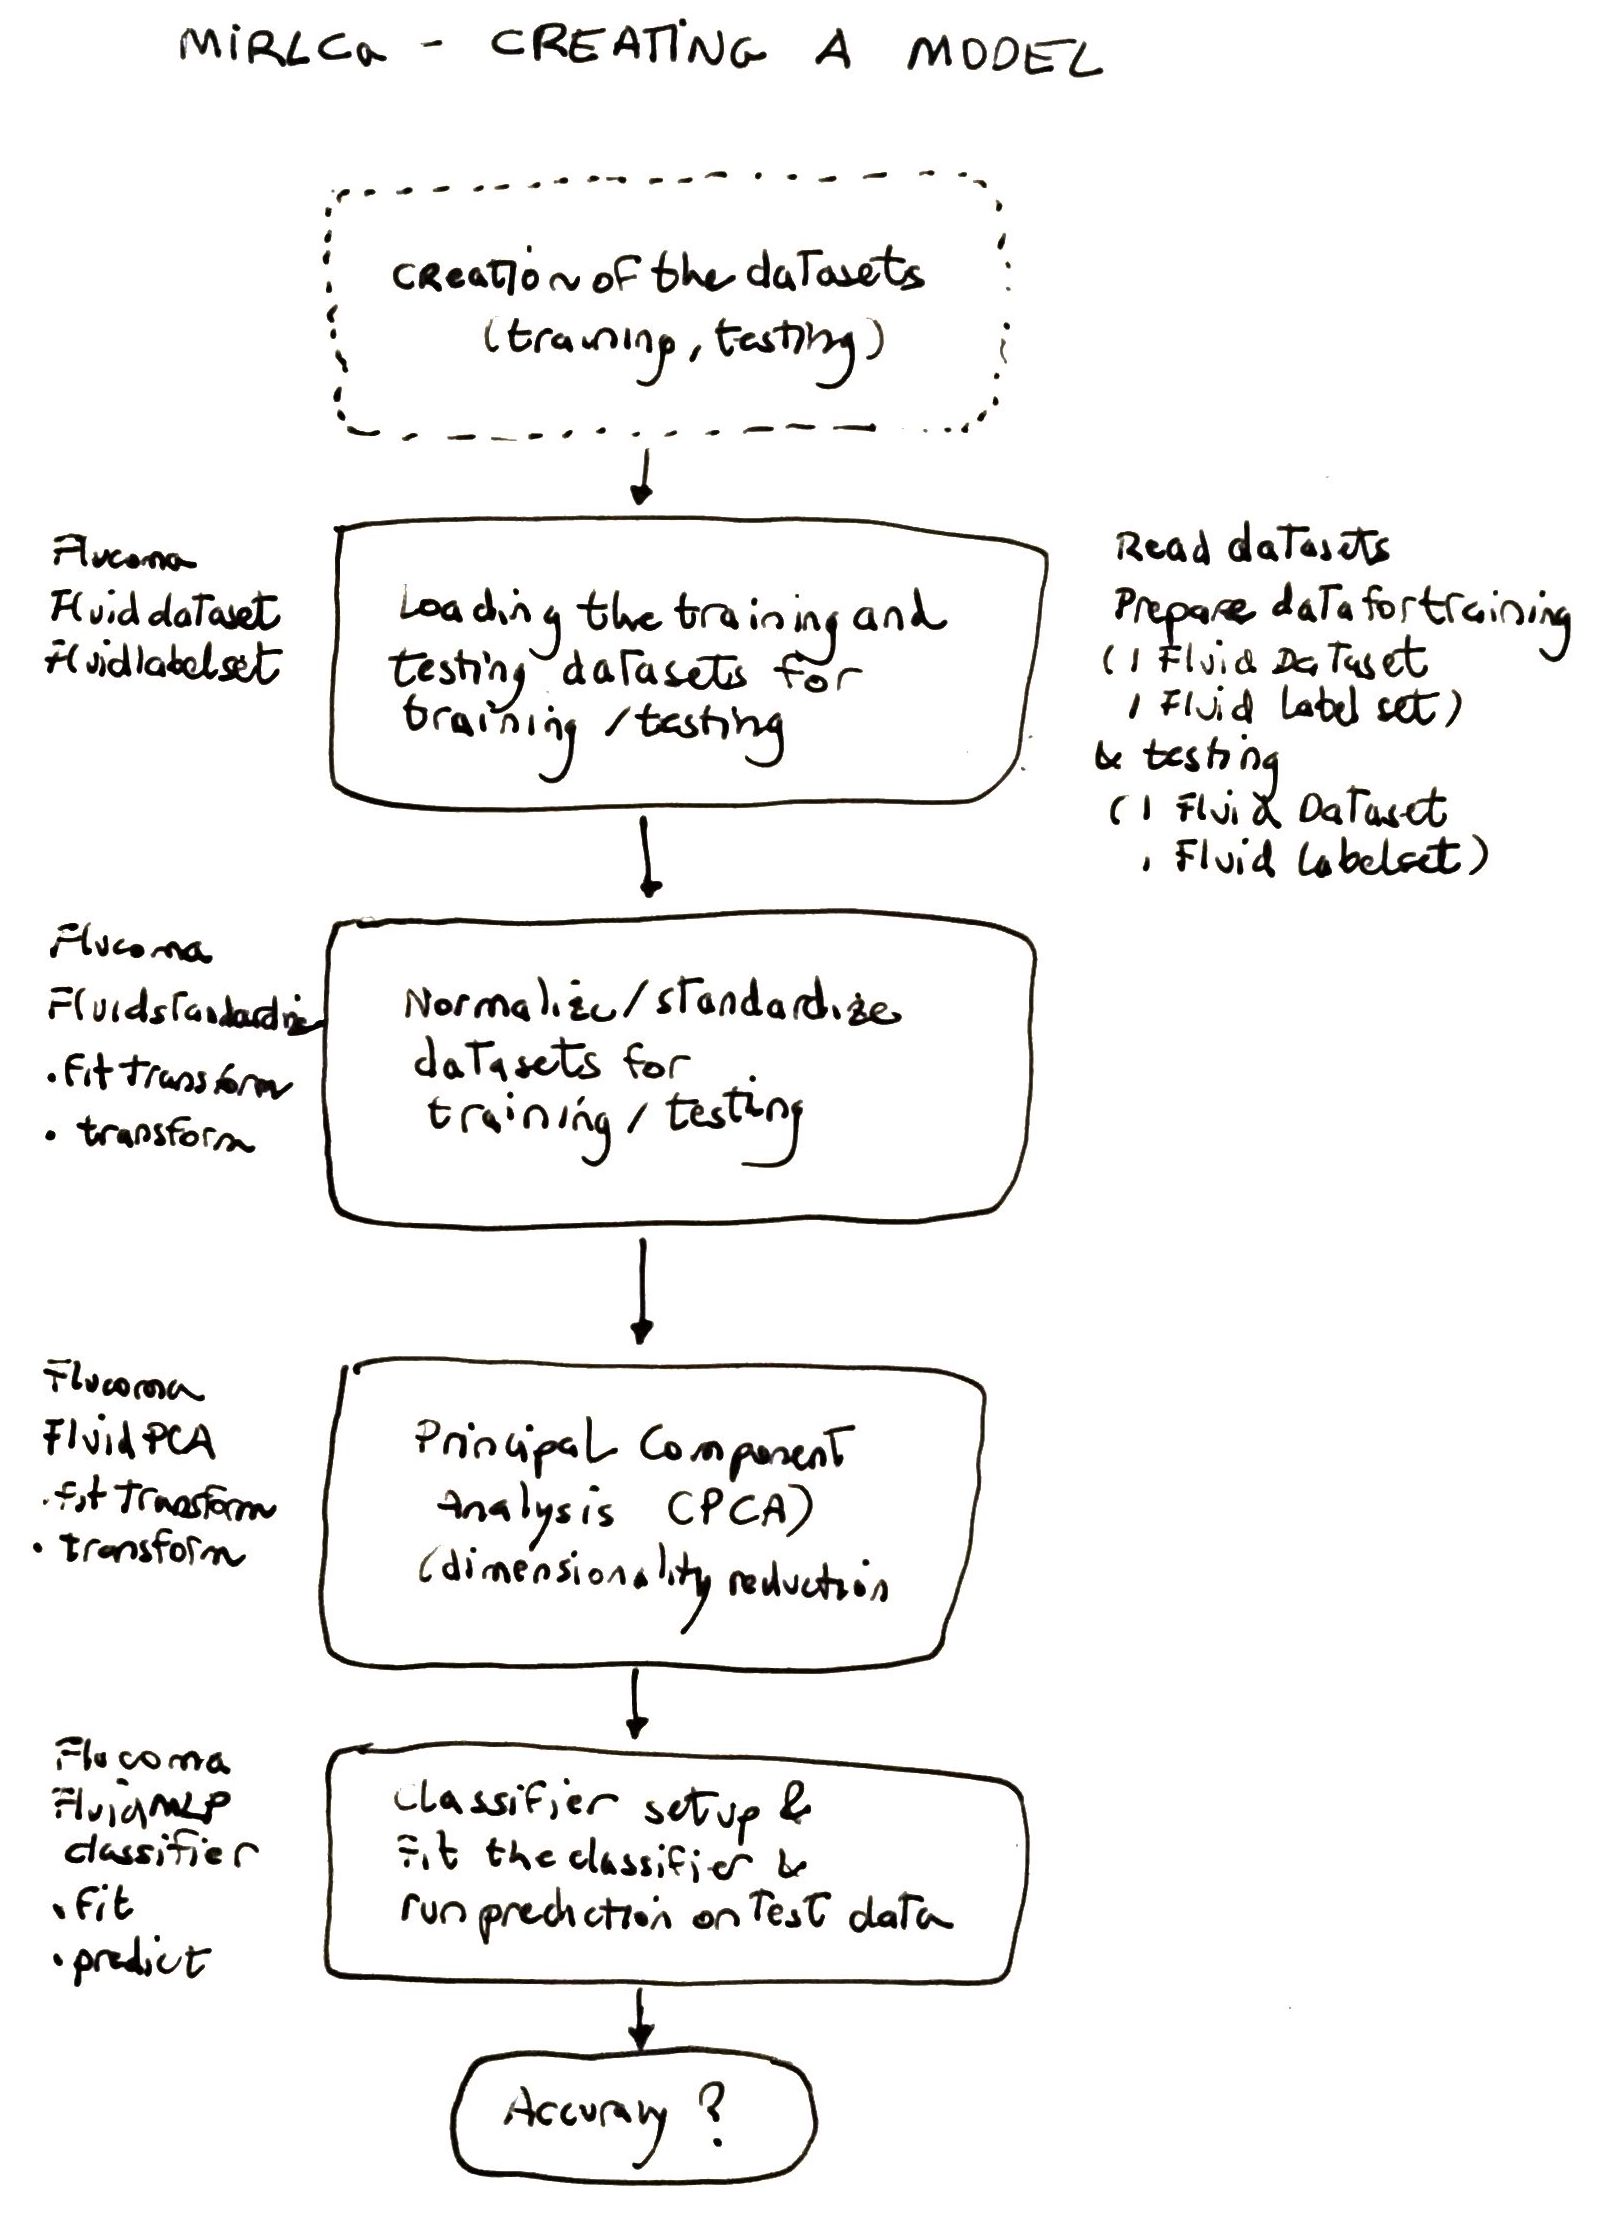 MiRLCa - CREATING A MODEL
Creation of the datasets
(training, testing)
Flucoma
Fluid dataset
Fluidlabelset
Loading the training and
testing datasets for
training / testing
Read datasets
Prepare data for training
(1 Fluid DaTaset
1 Fluid Label set)
& testing
(1 Fluid Dataset
1 Fluid Labelset)
Flucoma
Fluidstandardize
. fit transform
. transform
Normalize/standardize
datasets for
training / testing
Flucoma
FluidPCA
. fit Transform
. transform
Principal Component
Analysis (PCA)
(dimensionality reduction
Flucoma
FluidMLP
classifier
. fit
. predict
Classifier setup &
Fit the classifier &
run prediction on Test data
Accuracy ?